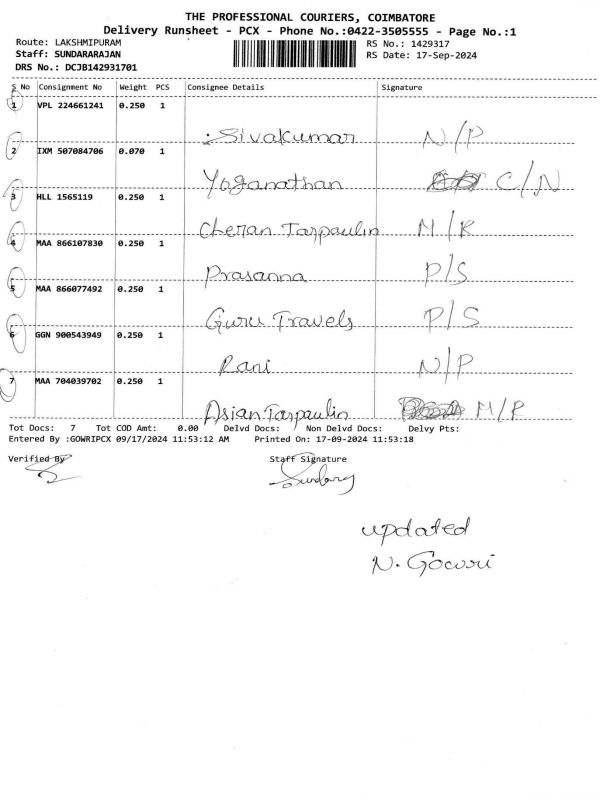 THE PROFESSIONAL COURIERS, COIMBATORE
Delivery Runsheet - PCX - Phone No.:0422-3505555 - Page No.:1
Route: LAKSHMIPURAM RS No.: 1429317
Staff: SUNDARARAJAN RS Date: 17-Sep-2024
DRS No.: DCJB142931701
S No Consignment No Weight PCS Consignee Details Signature
1 VPL 224661241 0.250 1
Sivakumar N/P
2 IXM 507084706 0.070 1
Yoganathan C/N
3 HLL 1565119 0.250 1
Cheran Tarpaulin M/R
4 MAA 866107830 0.250 1
Prasanna P/S
5 MAA 866077492 0.250 1
Guru Travels P/S
6 GGN 900543949 0.250 1
Rani N/P
7 MAA 704039702 0.250 1
Asian Tarpaulin M/R
Tot Docs: 7 Tot COD Amt: 0.00 Delvd Docs: Non Delvd Docs: Delvy Pts:
Entered By :GOWRIPCX 09/17/2024 11:53:12 AM Printed On: 17-09-2024 11:53:18
Verified By Staff Signature
Sundary
updated
N. Gowri